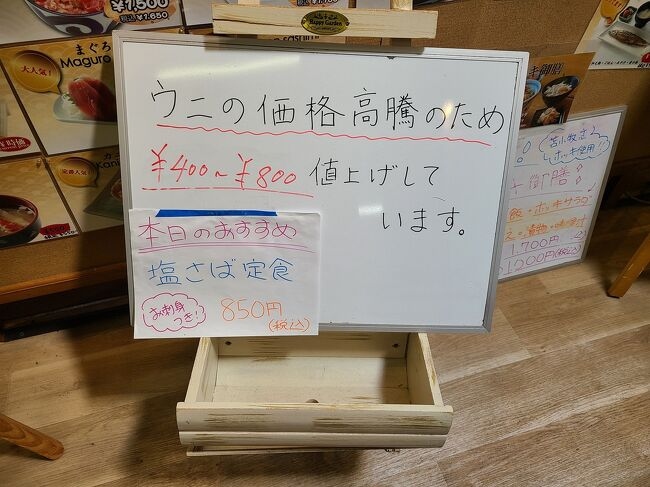 ¥1,500
税込¥1,650
Happy Garden
まぐろ
Maguro
大人気!
時価
定番人気!
ウニの価格高騰のため
¥400〜¥800 値上げして
います。
本日のおすすめ
塩さば定食
お刺身
つき!
850円
(税込)
キ御膳
苫小牧産
ホッキ使用!
御膳
飯・ホッキサラダ
1700円
1200円(税込)